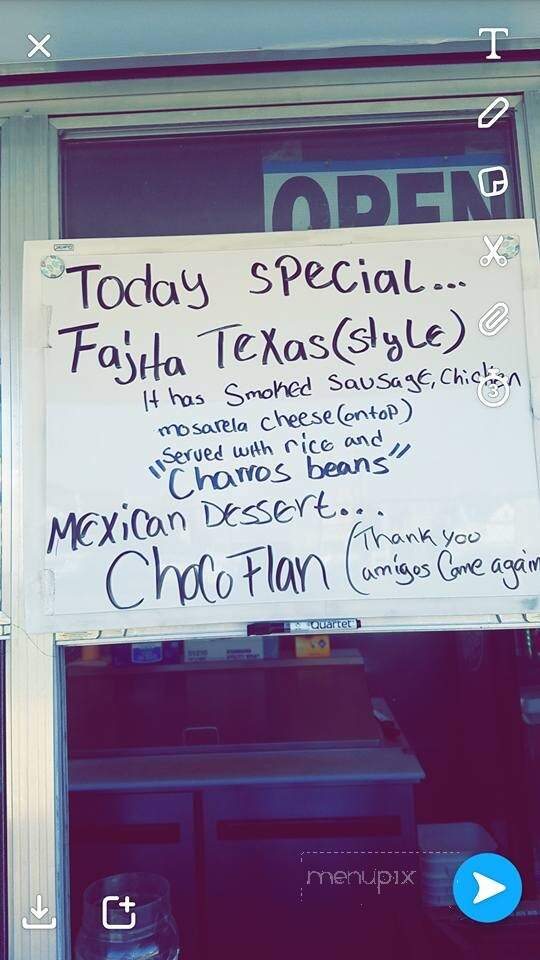 T
OPEN
3
Today special...
Fajita Texas (style)
It has Smoked sausage, chicken
mosarela cheese (ontop)
served with rice and
"Charros beans"
Mexican Dessert...
Choco Flan (Thank you
amigos Come again
Quartet
menupix